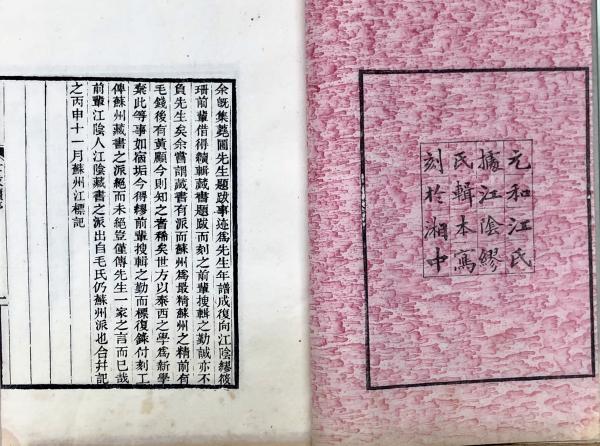 元和江氏
據江陰繆
氏輯本寫
刻於湘中
余旣集蕘圃先生題跋事迹爲先生年譜成復向江陰繆筱
珊前輩借得續輯藏書題跋而刻之前輩搜輯之勤誠亦不
負先生矣余嘗謂藏書有派而蘇州爲最精蘇州之精前有
毛錢後有黃顧今則知之者稀矣世方以泰西之學爲新學
棄此等事如宿垢今得繆前輩搜輯之勤而標復錄付刻工
俾蘇州藏書之派絕而未絕豈僅傳先生一家之言而已哉
前輩江陰人江陰藏書之派出自毛氏仍蘇州派也合幷記
之丙申十一月蘇州江標記